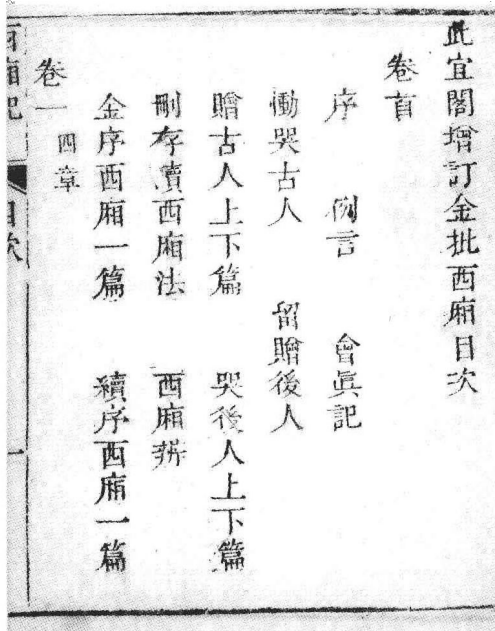 此宜閣增訂金批西廂目次
卷首
序　例言　會眞記
慟哭古人　留贈後人
贈古人上下篇　哭後人上下篇
刪存賣西廂法　西廂辨
金序西廂一篇　續序西廂一篇
卷一　四章
西廂記　目次　一